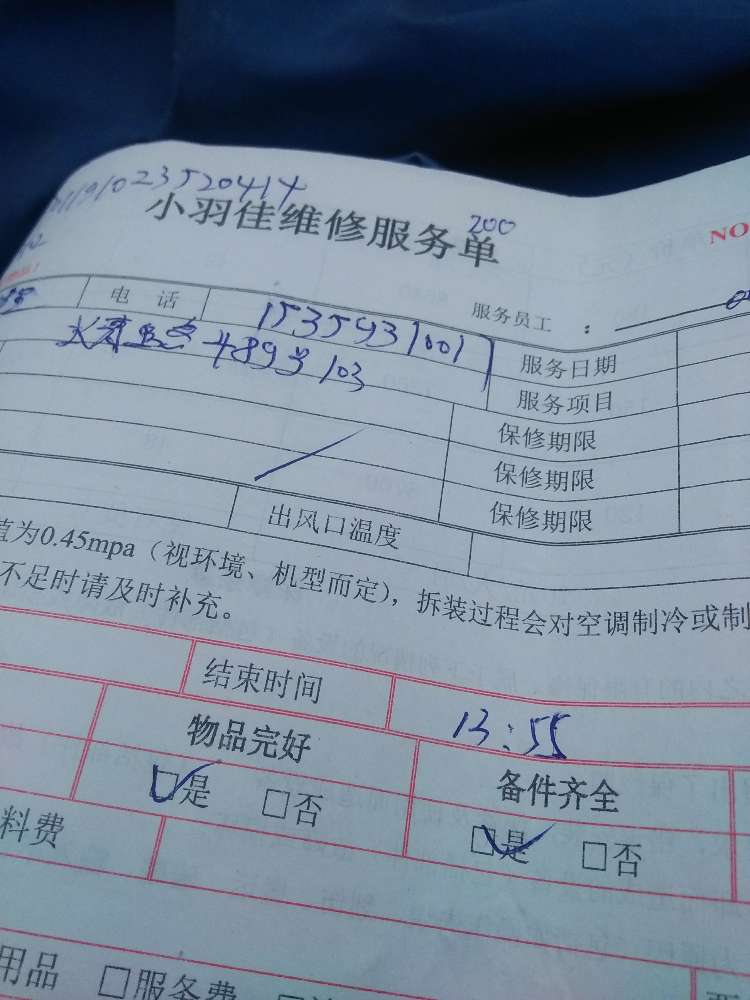 01191023520414
200
小羽佳维修服务单
NO
电 话 15359310017 服务员工 ：
489号103 服务日期
服务项目
保修期限
保修期限
出风口温度 保修期限
值为0.45mpa（视环境、机型而定），拆装过程会对空调制冷或制
不足时请及时补充。
结束时间 13:55
物品完好 备件齐全
□是 □否 □是 □否
料费
用品 □服务费